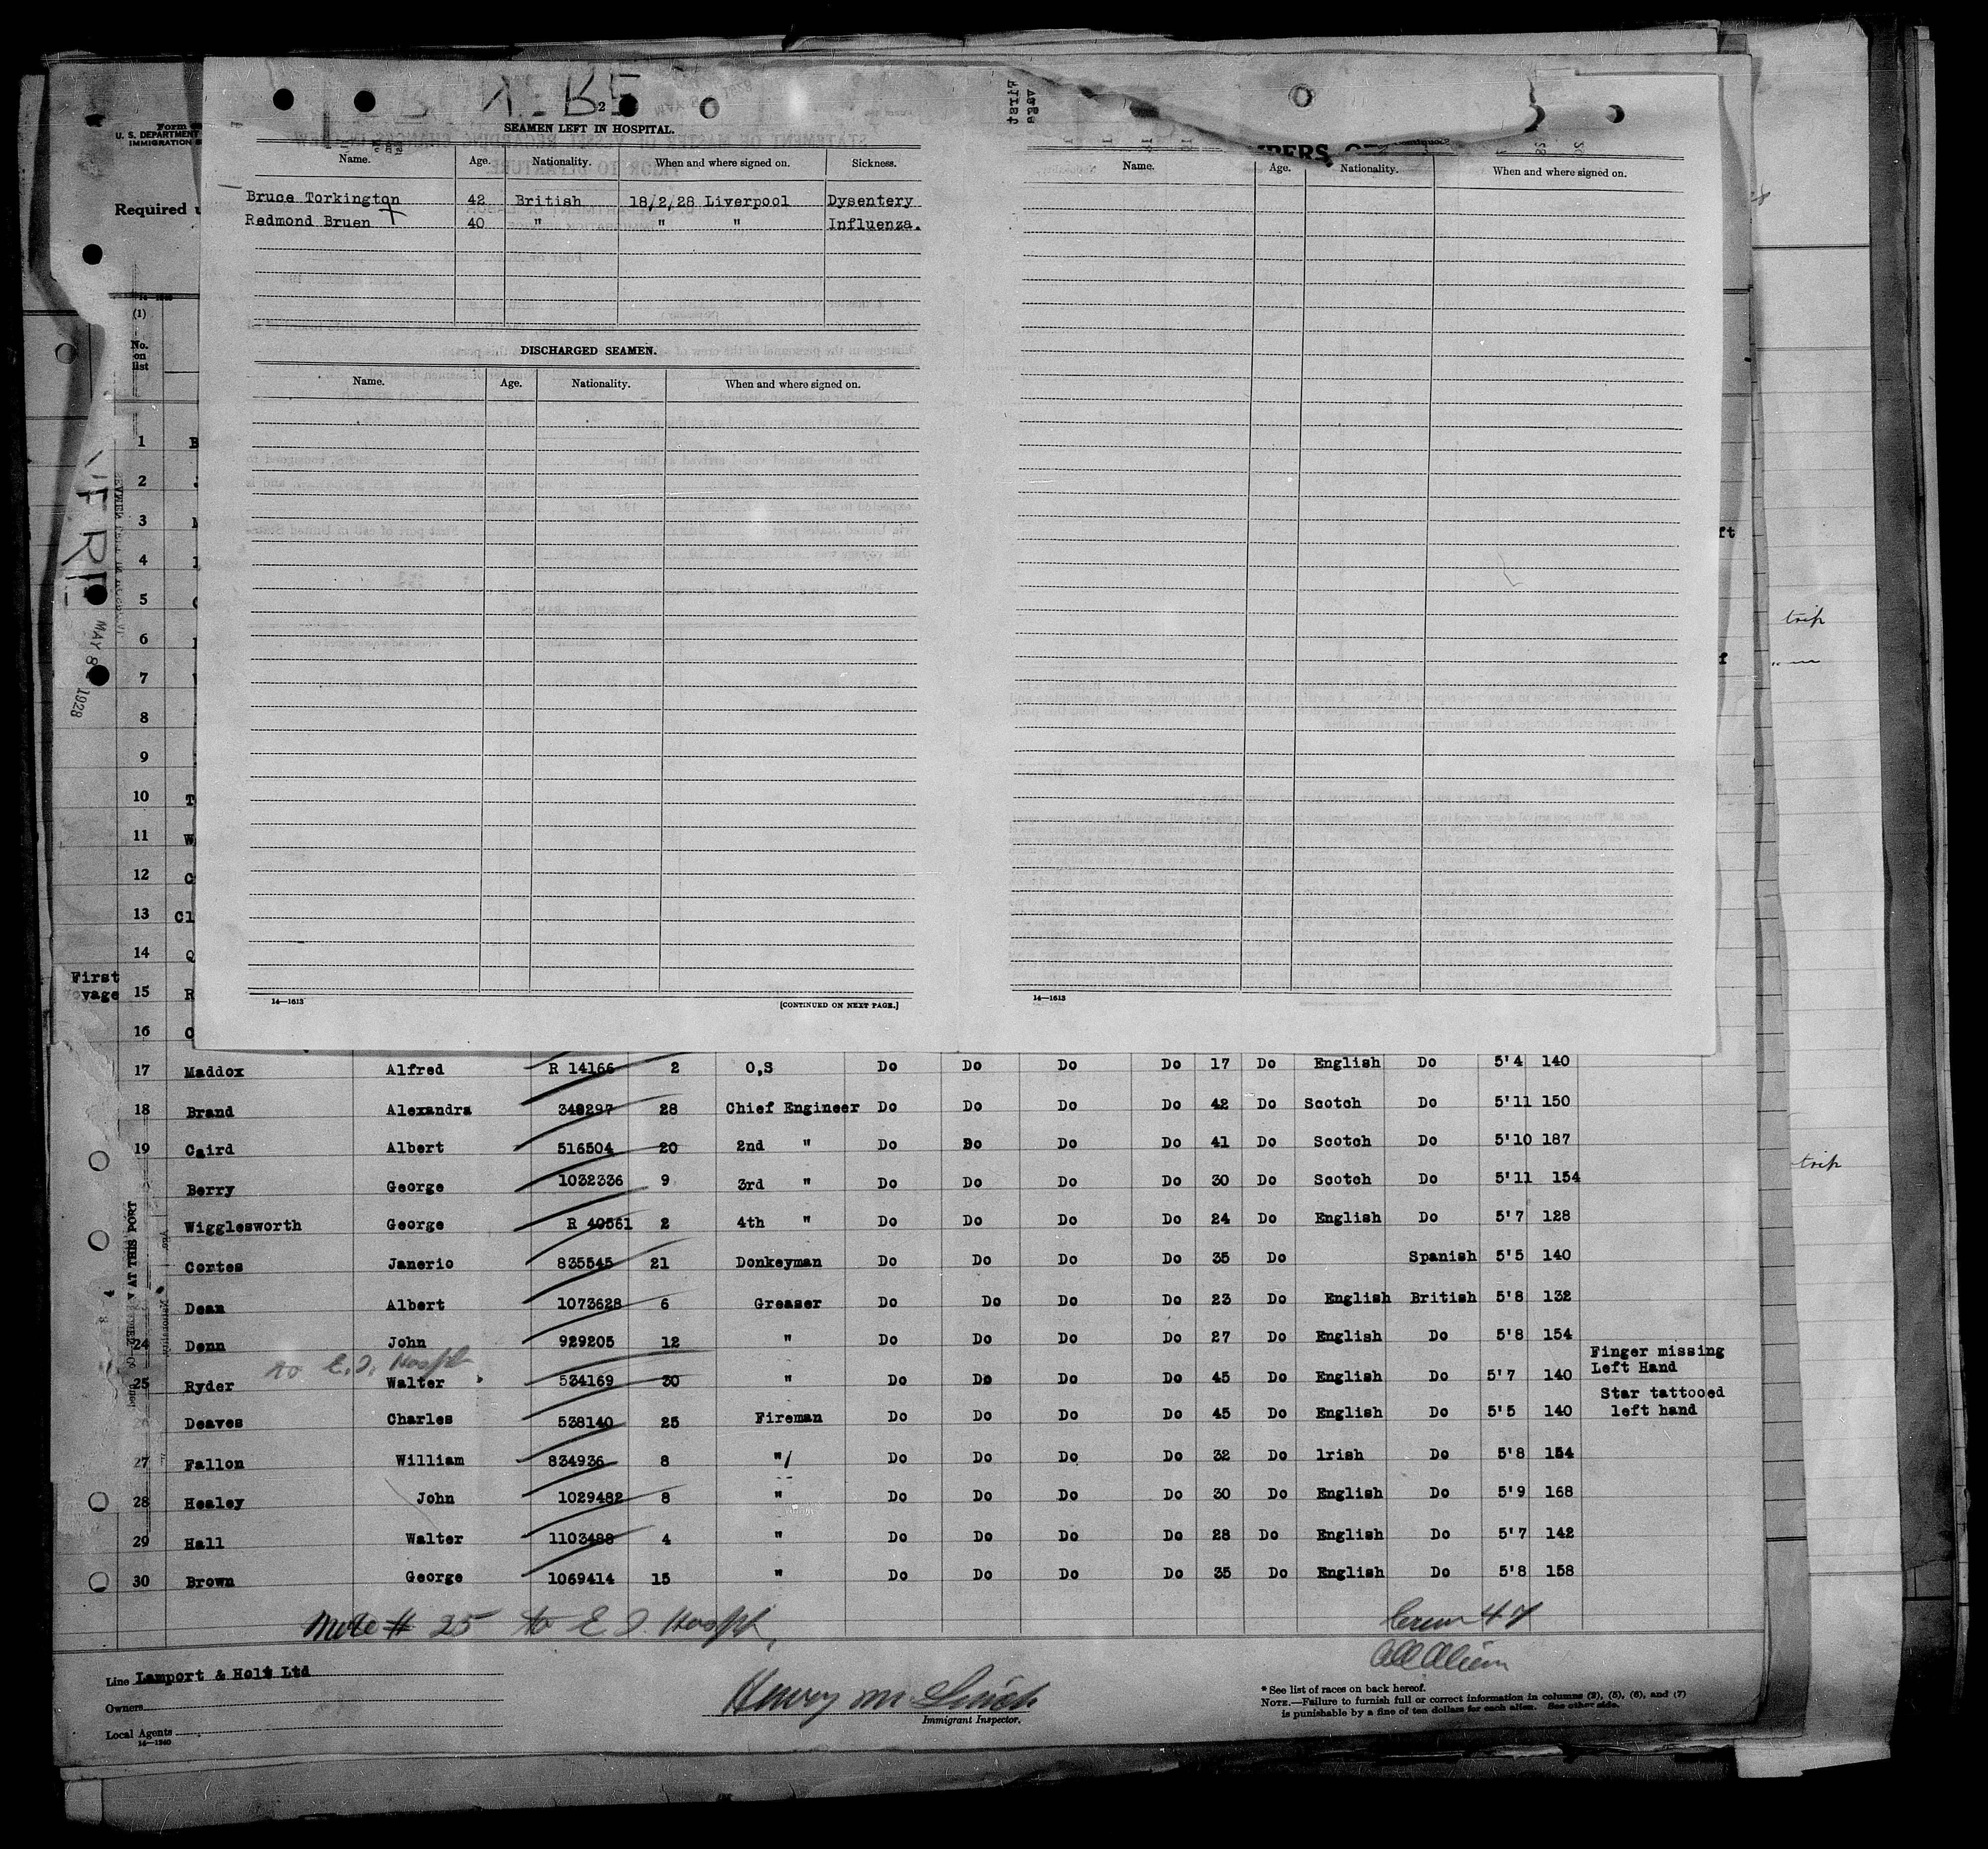 2
SEAMEN LEFT IN HOSPITAL.
Name. Age. Nationality. When and where signed on. Sickness.
Bruce Torkington 42 British 18/2/28 Liverpool Dysentery
Redmond Bruen 40 " " " Influenza.
DISCHARGED SEAMEN.
Name. Age. Nationality. When and where signed on.
14—1613
[CONTINUED ON NEXT PAGE.]
Name. Age. Nationality. When and where signed on.
14—1613
U. S. DEPARTMENT
IMMIGRATION
Required
(1)
No.
on
list
1 B
2
3
4
5
6
7
8
9
10 T
11 W
12 C
13 Cl
14 Q
First
15 R
16
MAY 8 1928
trip
trip
17 Maddox Alfred R 14166 2 O,S Do Do Do Do 17 Do English Do 5'4 140
18 Brand Alexandra 348297 28 Chief Engineer Do Do Do Do 42 Do Scotch Do 5'11 150
19 Caird Albert 516504 20 2nd " Do Do Do Do 41 Do Scotch Do 5'10 187
Berry George 1032336 9 3rd " Do Do Do Do 30 Do Scotch Do 5'11 154
Wigglesworth George R 40561 2 4th " Do Do Do Do 24 Do English Do 5'7 128
Cortes Janerio 835545 21 Donkeyman Do Do Do Do 35 Do Spanish 5'5 140
Dean Albert 1073628 6 Greaser Do Do Do Do 23 Do English British 5'8 132
24 Denn John 929205 12 " Do Do Do Do 27 Do English Do 5'8 154
to E.I. Hospt.
25 Ryder Walter 534169 30 " Do Do Do Do 45 Do English Do 5'7 140 Finger missing
Left Hand
Deaves Charles 538140 25 Fireman Do Do Do Do 45 Do English Do 5'5 140 Star tattooed
left hand
27 Fallon William 834936 8 " Do Do Do Do 32 Do Irish Do 5'8 154
28 Healey John 1029482 8 " Do Do Do Do 30 Do English Do 5'9 168
29 Hall Walter 1103488 4 " Do Do Do Do 28 Do English Do 5'7 142
30 Brown George 1069414 15 " Do Do Do Do 35 Do English Do 5'8 158
Note # 25 to E I. Hospt.
Crew 47
All Alien
Line Lamport & Holt Ltd
Owners
Local Agents
14—1240
Immigrant Inspector.
* See list of races on back hereof.
NOTE.—Failure to furnish full or correct information in columns (2), (5), (6), and (7)
is punishable by a fine of ten dollars for each alien. See other side.